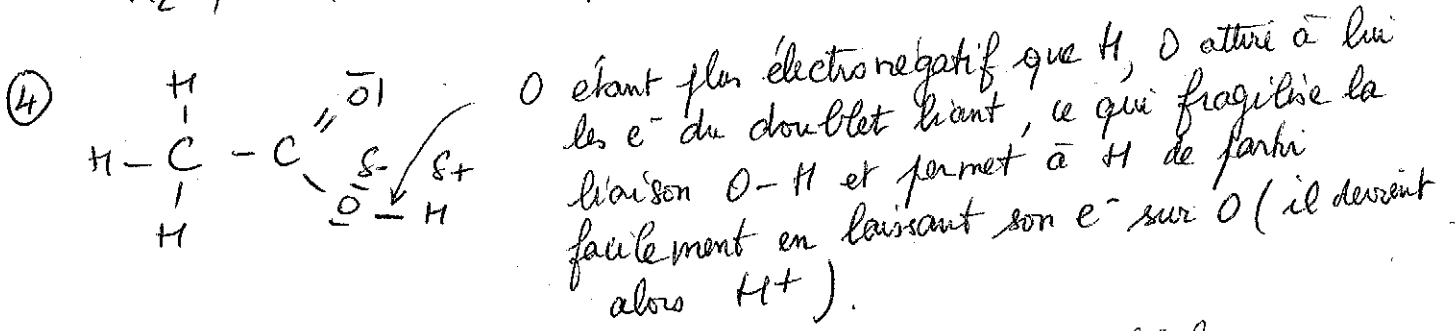 ④
H
O
H – C – C
δ- δ+
O – H
H
O étant plus électronégatif que H, O attire à lui
les e⁻ du doublet liant, ce qui fragilise la
liaison O-H et permet à H de partir
facilement en laissant son e⁻ sur O (il devient
alors H+).